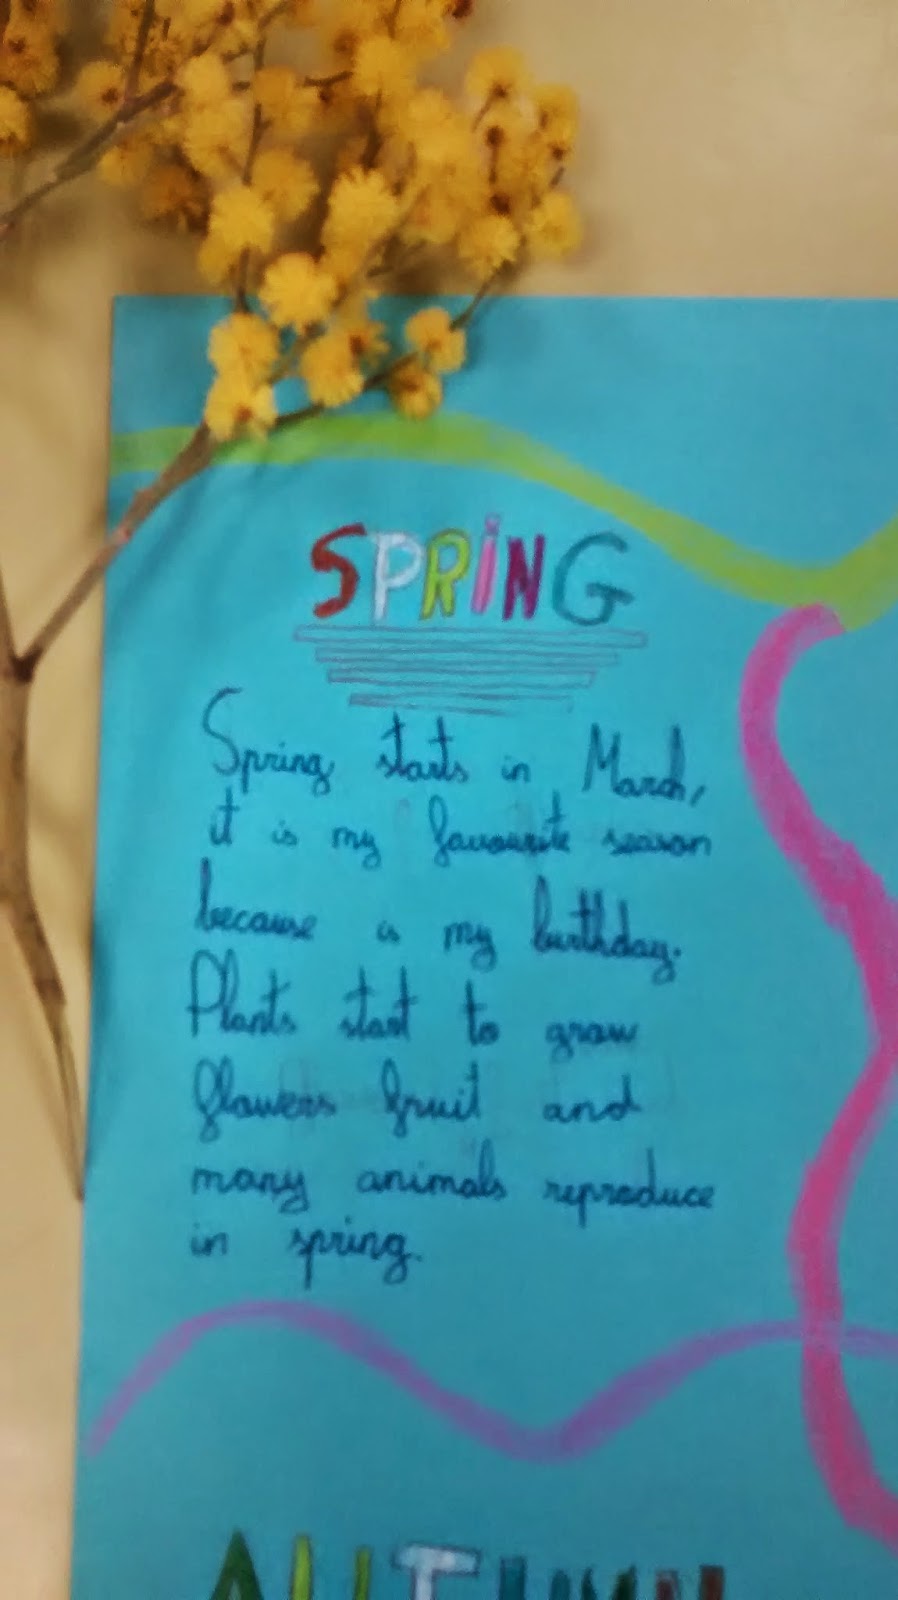 SPRiNG
Spring starts in March,
it is my favourite season
because is my birthday.
Plants start to grow
flowers fruit and
many animals reproduce
in spring.
AUTUMN